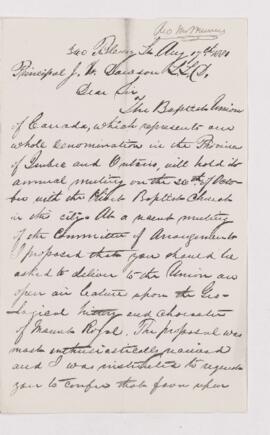 Geo McManus
340 Bleury St. Aug. 17th 1880
Principal J. W. Dawson L.L.D.
Dear Sir
The Baptist Union
of Canada, which represents our
whole denomination in the Provinces
of Quebec and Ontario, will hold its
annual meeting on the 20th of Octo-
ber with the Baptist Church
in this city. At a recent meeting
of the Committee of Arrangements
I proposed that you should be
asked to deliver to the Union an
open air lecture upon the Geo-
logical history and character
of Mount Royal. The proposal was
most enthusiastically received
and I was instructed to request
you to confer that favor upon